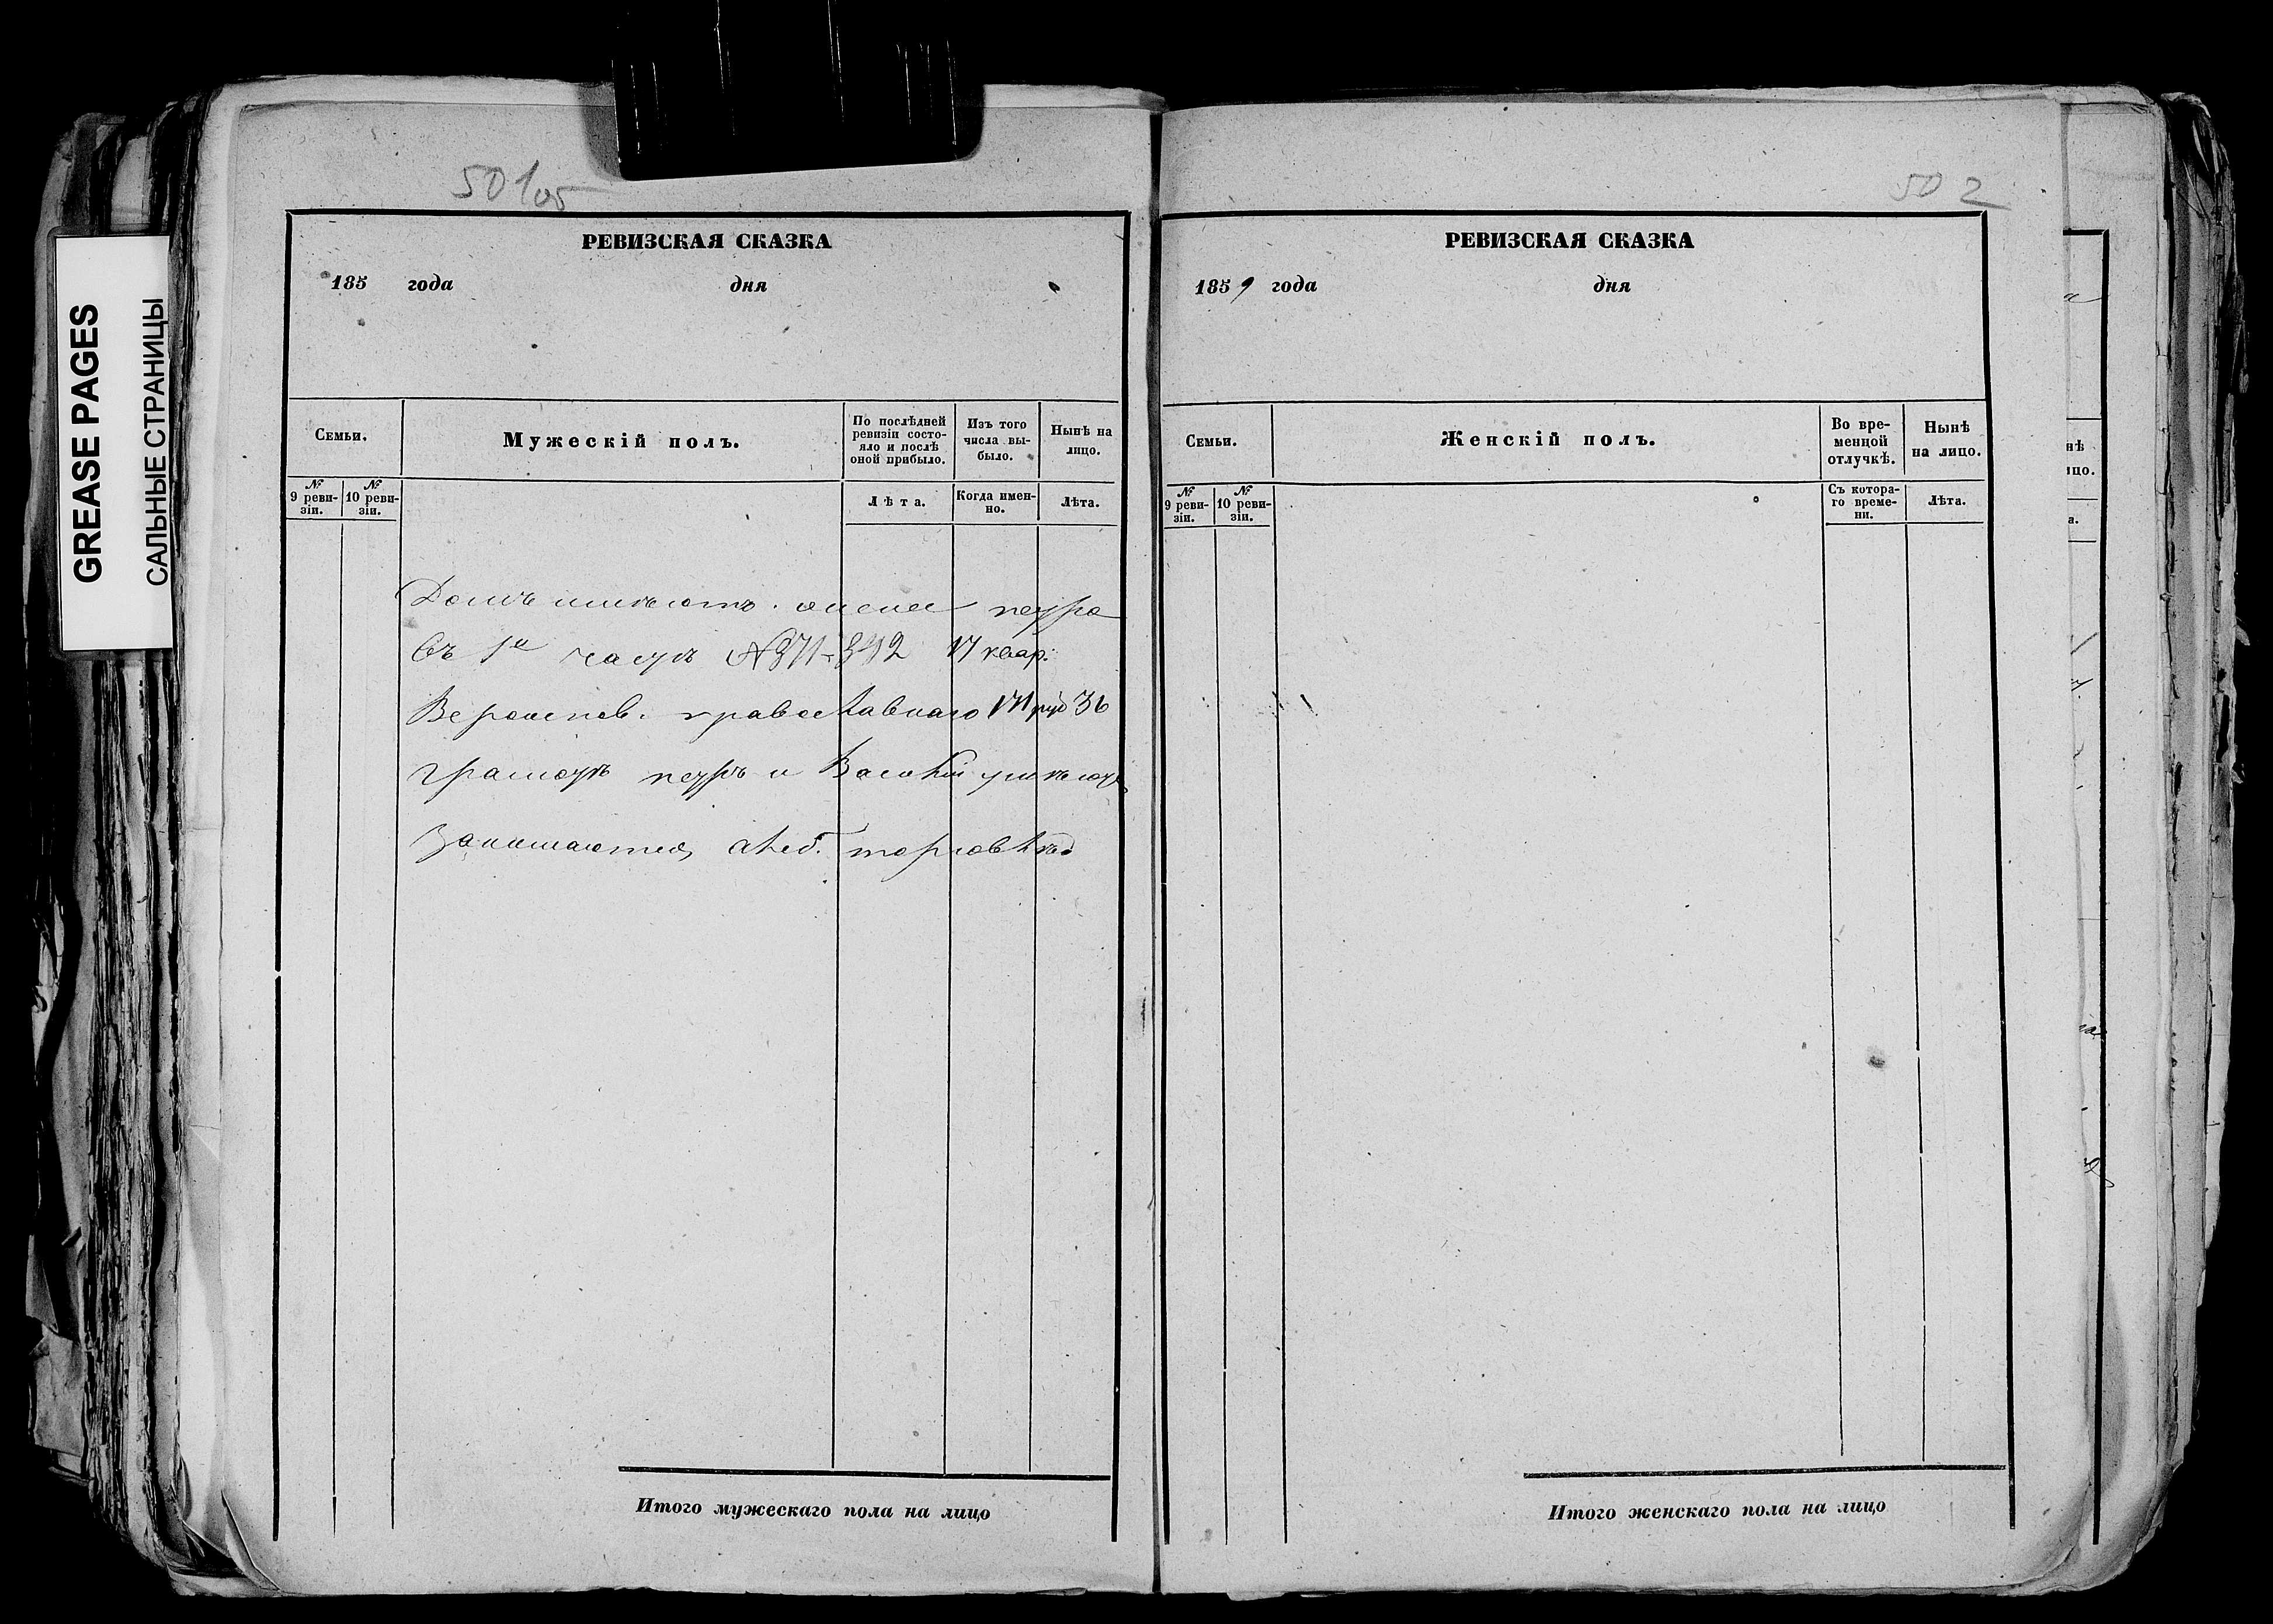 GREASE PAGES
САЛЬНЫЕ СТРАНИЦЫ
501об
РЕВИЗСКАЯ СКАЗКА
185 года дня
Семьи.
Мужескій полъ.
По послѣдней ревизіи состо-
яло и послѣ оной прибыло.
Изъ того числа вы-
было.
Нынѣ на лицо.
№ 9 реви-
зіи.
№ 10 реви-
зіи.
Лѣта.
Когда имен-
но.
Лѣта.
Домъ имѣютъ. отца петра
Въ 1й части № 17 квар:
Вероиспов. православнаго
грамотѣ петръ и Василій умѣютъ
Занимаются хлѣб. торговлею
Итого мужескаго пола на лицо
502
РЕВИЗСКАЯ СКАЗКА
1859 года дня
Семьи.
Женскій полъ.
Во вре-
менной
отлучкѣ.
Нынѣ
на лицо.
№ 9 реви-
зіи.
№ 10 реви-
зіи.
Съ котора-
го време-
ни.
Лѣта.
Итого женскаго пола на лицо